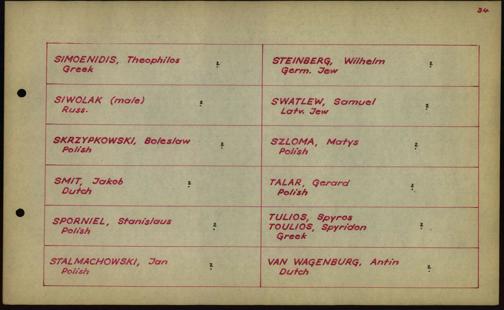 34.
SIMOENIDIS, Theophilos ?
Greek
SIWOLAK (male) ?
Russ.
SKRZYPKOWSKI, Boleslaw ?
Polish
SMIT, Jakob ?
Dutch
SPORNIEL, Stanislaus ?
Polish
STALMACHOWSKI, Jan ?
Polish
STEINBERG, Wilhelm ?
Germ. Jew
SWATLEW, Samuel ?
Latv. Jew
SZLOMA, Matys ?
Polish
TALAR, Gerard ?
Polish
TULIOS, Spyros
TOULIOS, Spyridon ?
Greek
VAN WAGENBURG, Antin ?
Dutch